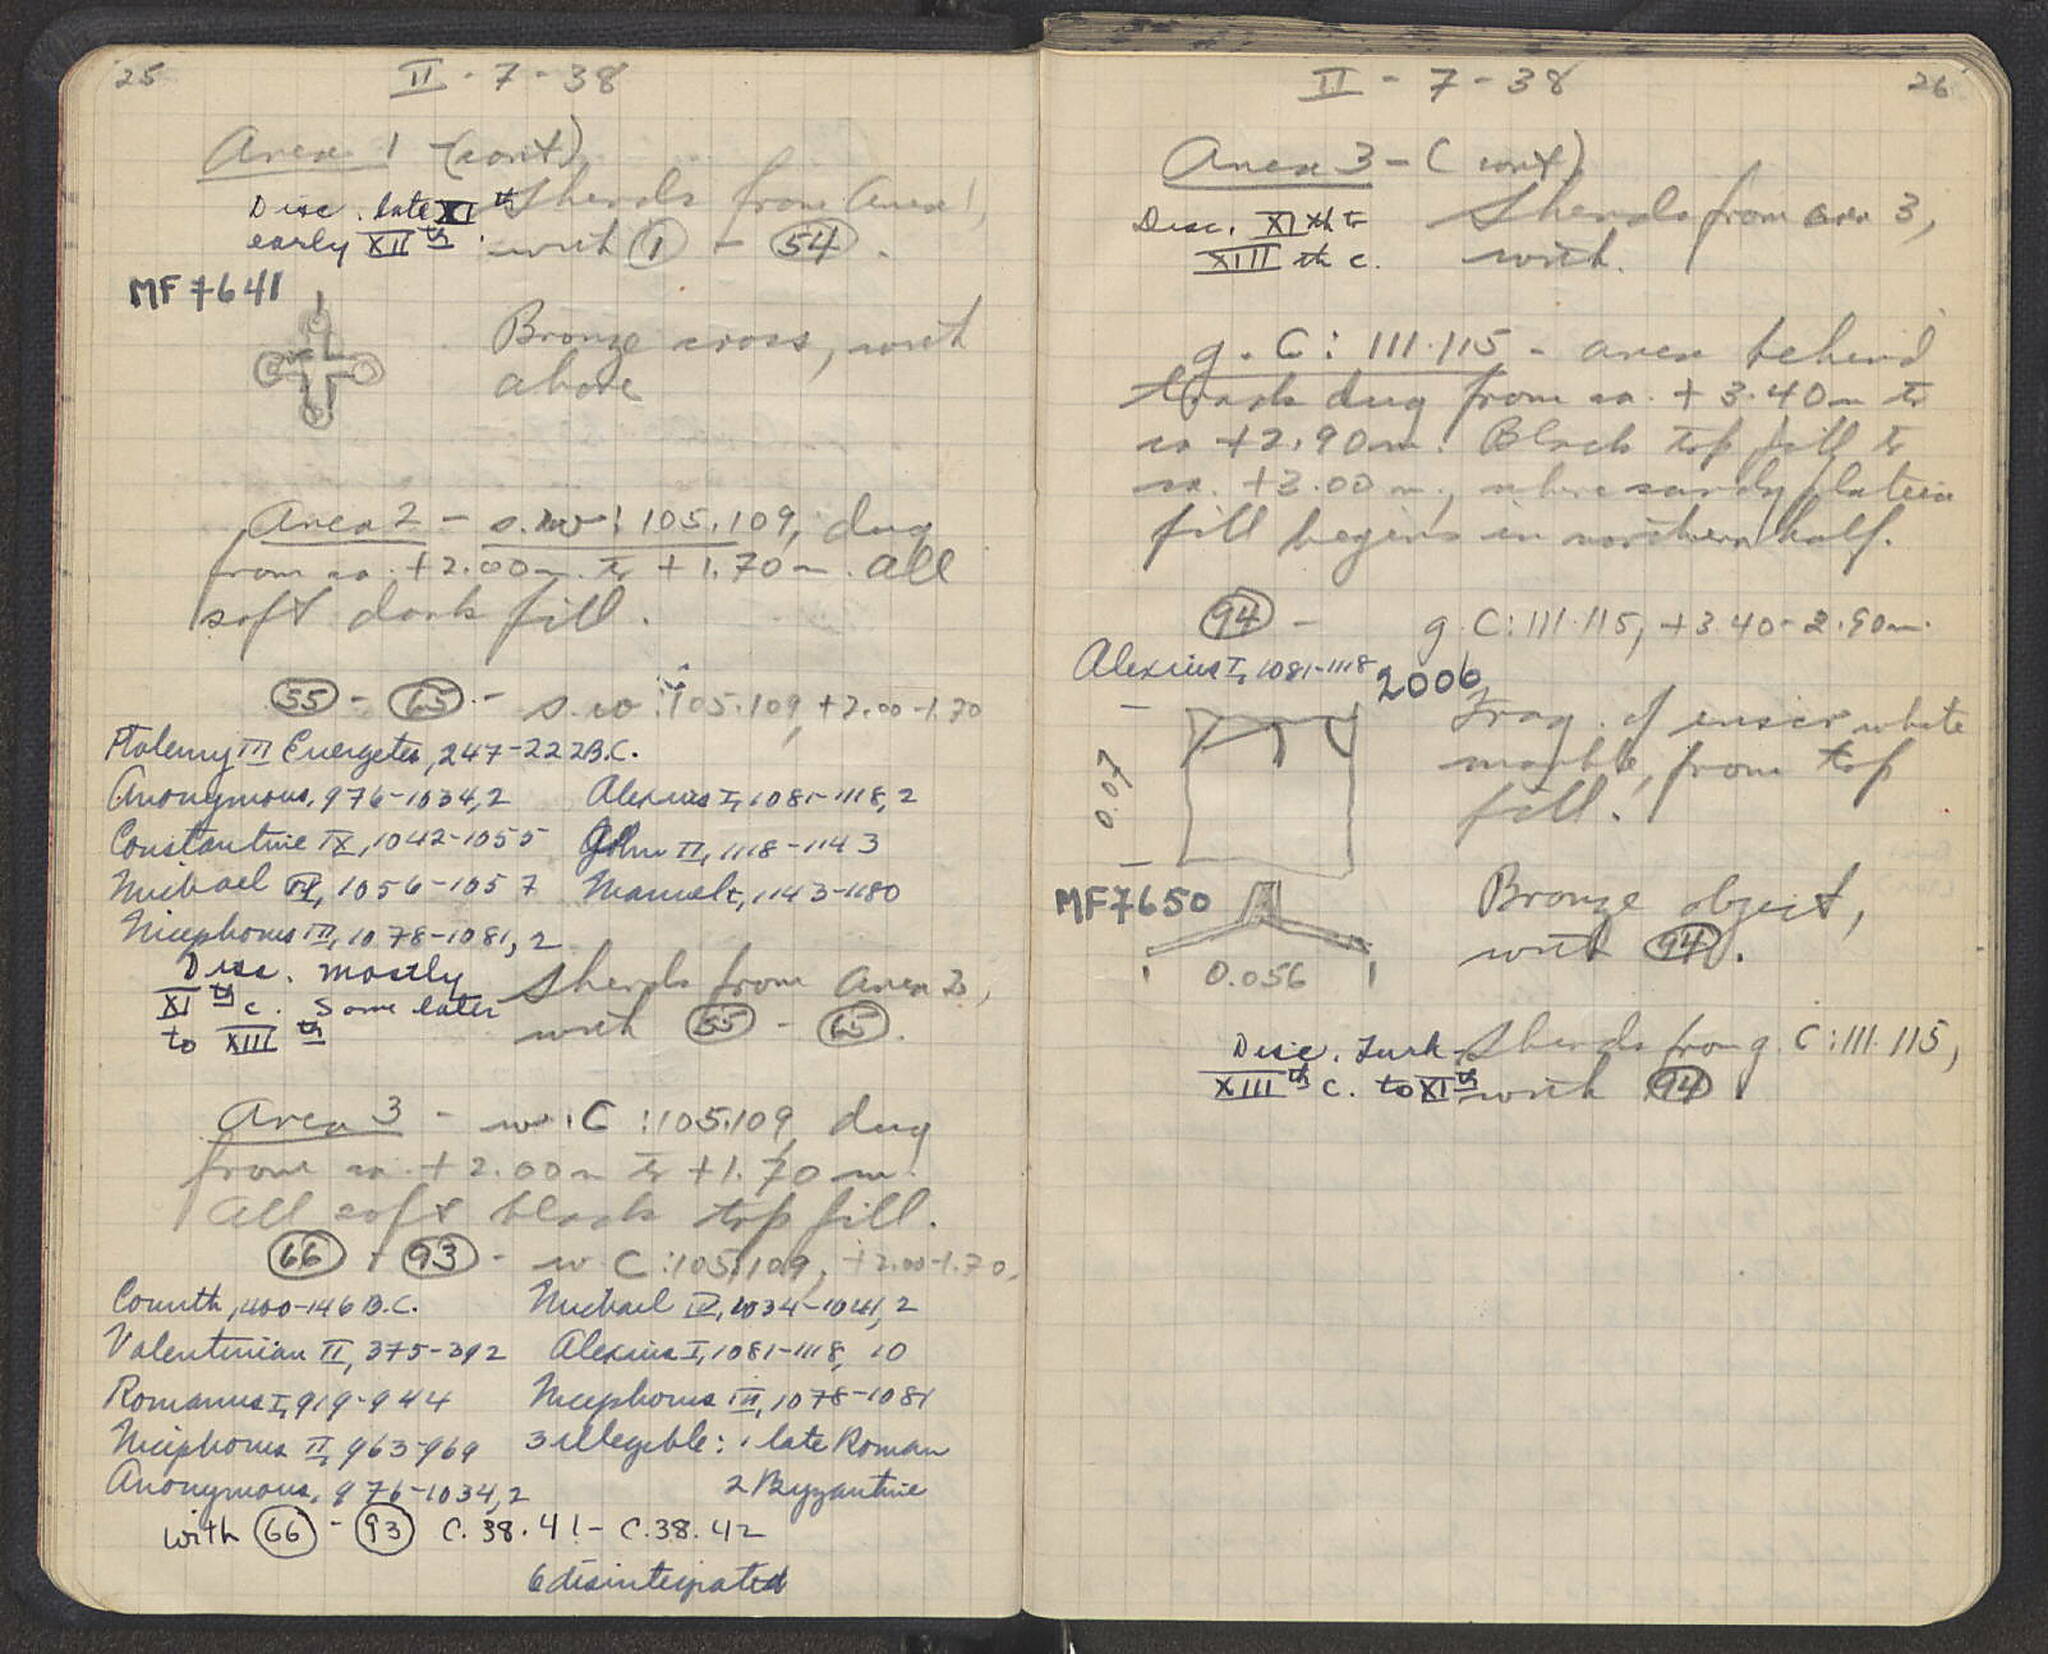 25
II - 7 - 38
Area 1 - (cont)
Disc. late XIth Sherds from Area 1,
early XIIth. with 1 - 54.
MF 7641
Bronze cross, with
above
Area 2 - s.w: 105.109, dug
from ca. +2.00m. to +1.70m. All
soft dark fill.
55 - 65 - s.w: 105.109, +2.00-1.70
Ptolemy III Euergetes, 247-222 B.C.
Anonymous, 976-1034, 2 Alexius I, 1081-1118, 2
Constantine IX, 1042-1055 John II, 1118-1143
Michael VI, 1056-1057 Manuel I, 1143-1180
Nicephorus III, 1078-1081, 2
Disc. mostly Sherds from Area 2,
XIth c. Some later with 55 - 65.
to XIIIth
Area 3 - w: C: 105.109, dug
from ca. +2.00m to +1.70m.
All soft black top fill.
66 - 93 - w C: 105.109, +2.00-1.70,
Corinth, 400-146 B.C. Michael IV, 1034-1041, 2
Valentinian II, 375-392 Alexius I, 1081-1118, 10
Romanus I, 919-944 Nicephorus III, 1078-1081
Nicephorus II, 963-969 3 illegible: 1 late Roman
Anonymous, 976-1034, 2 2 Byzantine
with 66 - 93 C.38.41 - C.38.42
6 disintegrated
II - 7 - 38
26
Area 3 - (cont)
Disc. XIth to Sherds from area 3,
XIIIth c. with.
g. C: 111.115 - area behind
track dug from ca. +3.40m to
ca +2.90m. Black top fill to
ca. +3.00m., where sandy plateia
fill begins in northern half.
94 - g. C: 111.115, +3.40-2.90m.
Alexius I, 1081-1118
2006
Frag. of inscr. white
marble, from top
fill.
0.07
MF 7650
Bronze object,
with 94.
0.056
Disc. Turk - Sherds from g. C: 111.115,
XIIIth c. to XIth with 94.